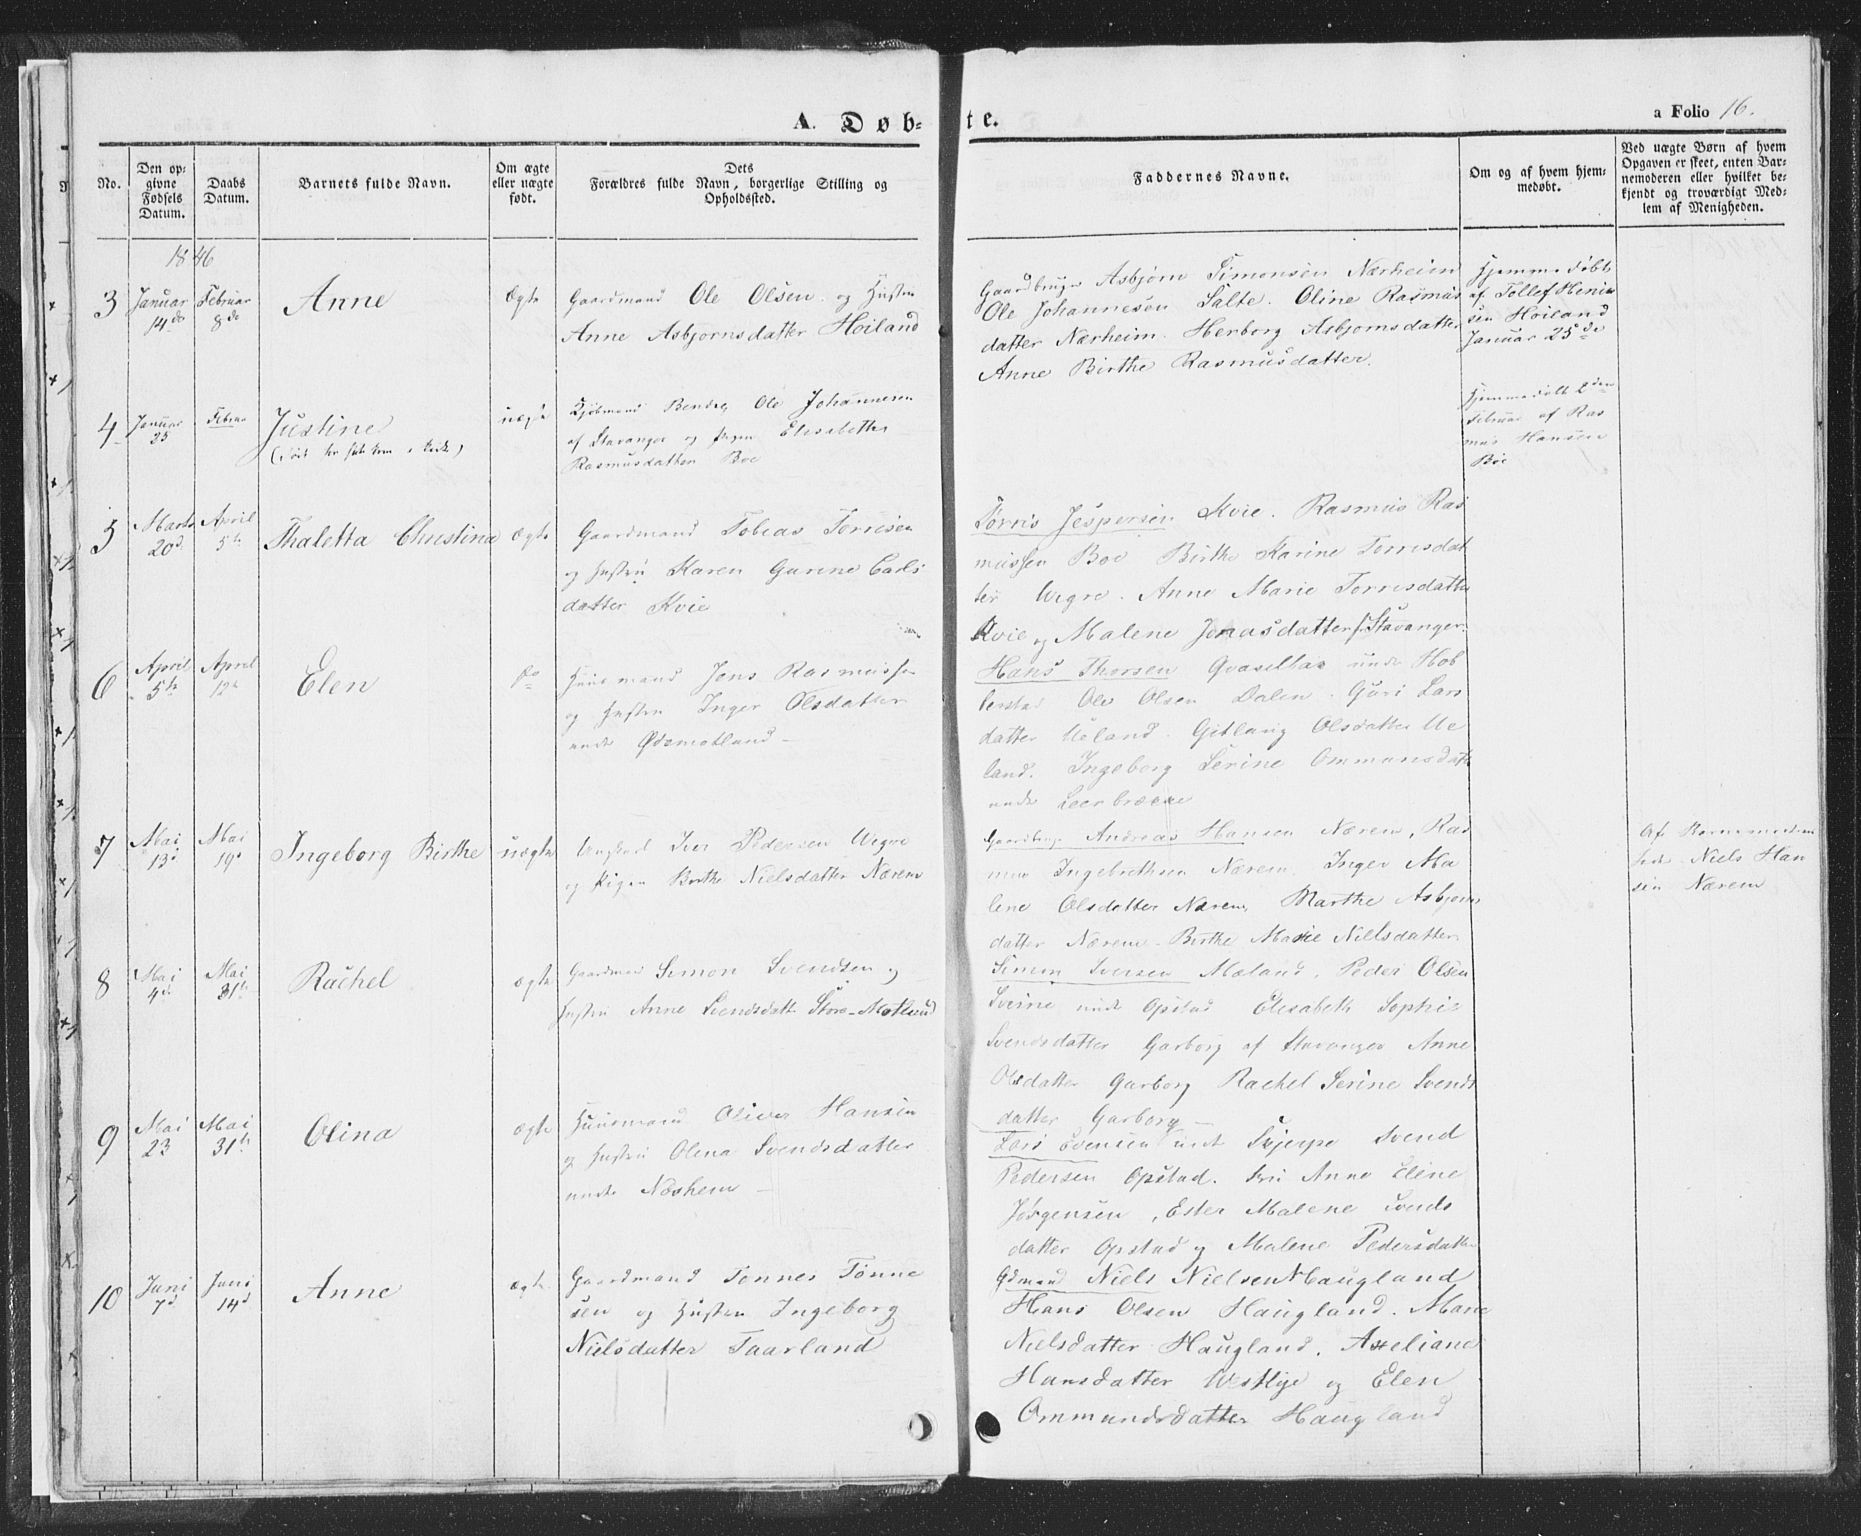 A. Døb-
te.
a Folio 16.
No.
Den op-
givne
Fødsels
Datum.
Daabs
Datum.
Barnets fulde Navn.
Om ægte
eller uægte
født.
Dets
Forældres fulde Navn, borgerlige Stilling og
Opholdssted.
Faddernes Navne.
Om og af hvem hjem-
medøbt.
Ved uægte Børn af hvem
Opgaven er skeet, enten Bar-
nemoderen eller hvilket be-
kjendt og troværdigt Med-
lem af Menigheden.
1846
3
Januar
14de
Februar
8de
Anne
Ægte
Gaardmand Ole Olsen og Hustru
Anne Asbjørnsdatter Høiland
Gaardbruger Asbjørn Simonsen Nærheim
Ole Johannesen Salte. Oline Rasmus
datter Nærheim. Herborg Asbjørnsdatter
Anne Birthe Rasmusdatter.
Hjemmedøbt
af Tollef Henrik
sen Høiland
Januar 25de
4
Januar
25
Februar
Justine
uægte
Kjøbmand Ole Johannesen
af Stavanger og Pigen Elisabeth
Rasmusdatter Boe
Hjemmedøbt 2den
Februar af Ras
mus Hansen
Boe
5
Marts
20d
April
5te
Thaletta Christina
Ægte
Gaardmand Tobias Torrisen
og Hustru Karen Gurine Carls
datter Kvie
Torris Jespersen Kvie. Rasmus Ras
mussen Boe Birthe Karine Torrisdat
ter Wigre. Anne Marie Torrisdatter
Kvie og Malene Jonasdatter Stavanger.
6
April
5te
April
12te
Elen
do
Huusmand Jens Rasmussen
og Hustru Inger Olsdatter
unde Ødemotland
Hans Thorsen under Hob
berstad Ole Olsen Dalen. Guri Lars
datter Ueland. Gitlaug Olsdatter Ue
land. Ingeborg Serine Ommunsdatter
unde Leerbrække
7
Mai
13d
Mai
19d
Ingeborg Birthe
uægte
Ungkarl Iver Pedersen Wigre
og Pigen Birthe Nielsdatter Nærem
Gaardbruger Andreas Hansen Nærem, Ras
mus Ingebrethsen Nærem. Inger Ma
lene Olsdatter Nærem, Marthe Asbjørns
datter Nærem. Birthe Marie Nielsdatter.
Af Barnemoderen
Niels Han
sen Nærem
8
Mai
4d
Mai
31te
Rachel
ægte
Gaardman Simon Svendsen og
Hustru Anne Svendsdatt. Store-Motland
Simon Iversen Mæland. Peder Olsen
unde Opstad Elisabeth Sophie
Svendsdatter Garborg af Stavanger Anne
Olsdatter Garborg Rachel Serine Svends
datter Garborg
9
Mai
23
Mai
31te
Olina
ægte
Huusmand Oliver Hansen
og Hustru Olena Svendsdatter
unde Næshem
Lars Svensen unde Skjerpe Svend
Pedersen Opstad. Anne Eline
Jørgensen, Ester Malene Svends
datter Opstad og Malene Pedersdatter
10
Juni
7d
Juni
14d
Anne
ægte
Gaardmand Tønnes Tønne
sen og Hustru Ingeborg
Nielsdatter Taarland
Gdmand Niels Nielsen Haugland
Hans Olsen Haugland. Marie
Nielsdatter Haugland. Axeliane
Hansdatter Westlye og Elen
Ommundsdatter Haugland